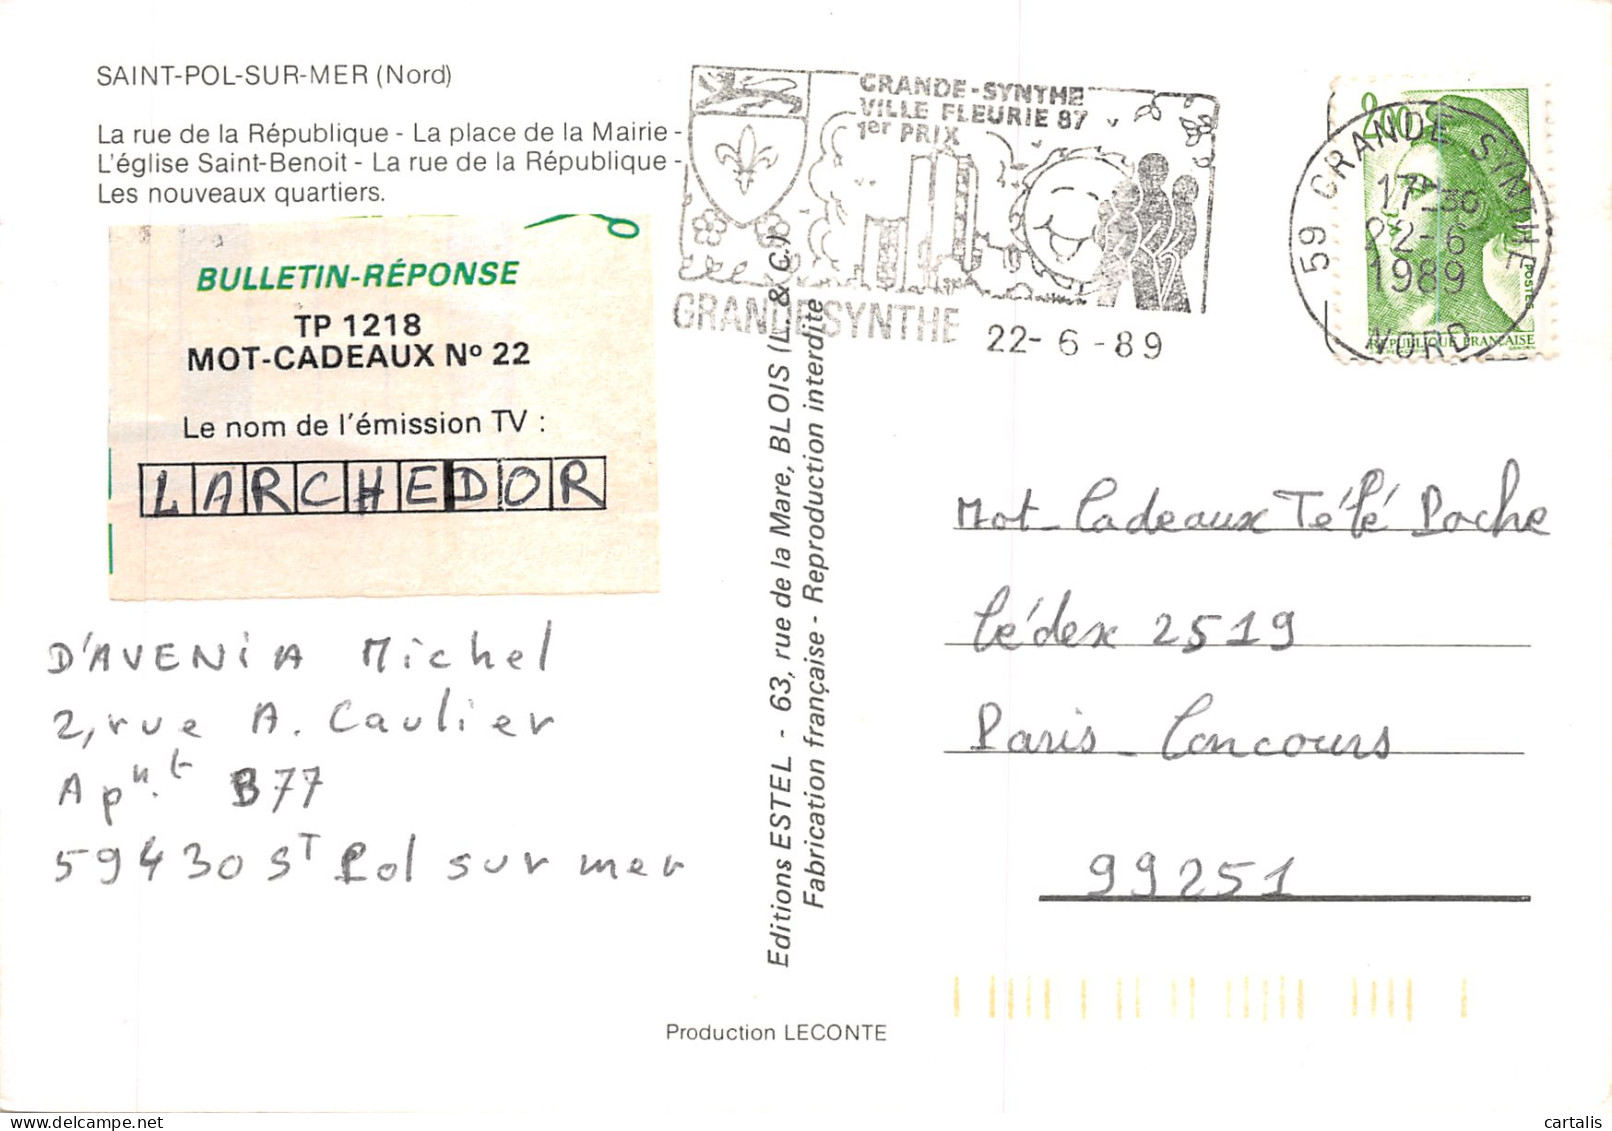 SAINT-POL-SUR-MER (Nord)
La rue de la République - La place de la Mairie -
L'église Saint-Benoit - La rue de la République -
Les nouveaux quartiers.
BULLETIN-RÉPONSE
TP 1218
MOT-CADEAUX Nº 22
Le nom de l'émission TV :
LARCHEDOR
D'AVENIA Michel
2, rue A. Caulier
Apn.t B77
59430 ST Pol sur mer
Editions ESTEL - 63, rue de la Mare, BLOIS (L. & C.)
Fabrication française - Reproduction interdite
Production LECONTE
GRANDE-SYNTHE
VILLE FLEURIE 87
1er PRIX
GRANDE SYNTHE
22-6-89
59 GRANDE SYNTHE
17H30
22-6
1989
NORD
2,00
POSTES
REPUBLIQUE FRANÇAISE
Mot-Cadeaux Télé Poche
Cédex 2519
Paris-Concours
99251
cartalis